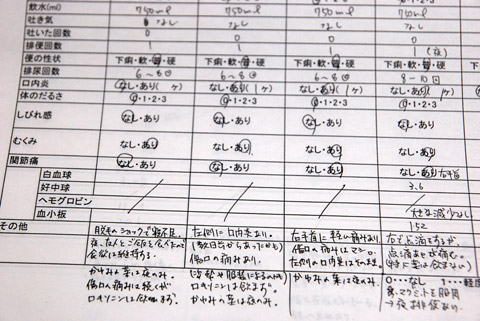 飲水(ml) 750ml 750ml 750ml 750ml
吐き気 なし なし なし なし
吐いた回数 0 0 0 0
排便回数 1 1 1 1 (夜)
便の性状 下痢・軟・普・硬 下痢・軟・普・硬 下痢・軟・普・硬 下痢・軟・普・硬
排尿回数 6～8回 6～8回 6～8回 8-10回
口内炎 なし・あり( 1ヶ) なし・あり( 1ヶ) なし・あり( 1ヶ) なし・あり( 1ヶ
体のだるさ 0・1・2・3 0・1・2・3 0・1・2・3 0・1・2・3
しびれ感 なし・あり なし・あり なし・あり なし・あり
むくみ なし・あり なし・あり なし・あり なし・あり
関節痛 なし・あり なし・あり なし・あり なし・あり 右手首
白血球
好中球 3.6
ヘモグロビン
血小板 152
その他
脱毛のショックで寝不足。
食欲は維持する。
かゆみの薬は夜のみ。
傷の痛みは続くが
ロキソニンは飲める。
左側に口内炎あり。
(数日前からあったかも)
傷口の痛みあり。
ロキソニンは飲まず。
かゆみの薬は夜のみ。
右手首に軽い痛みあり。
傷口の痛みはマシ。
左側の口内炎はそのまま。
かゆみの薬は夜のみ。
点滴あとが痛む。
(特に薬は飲まない)
0…なし 1…軽度
→夜排便あり。